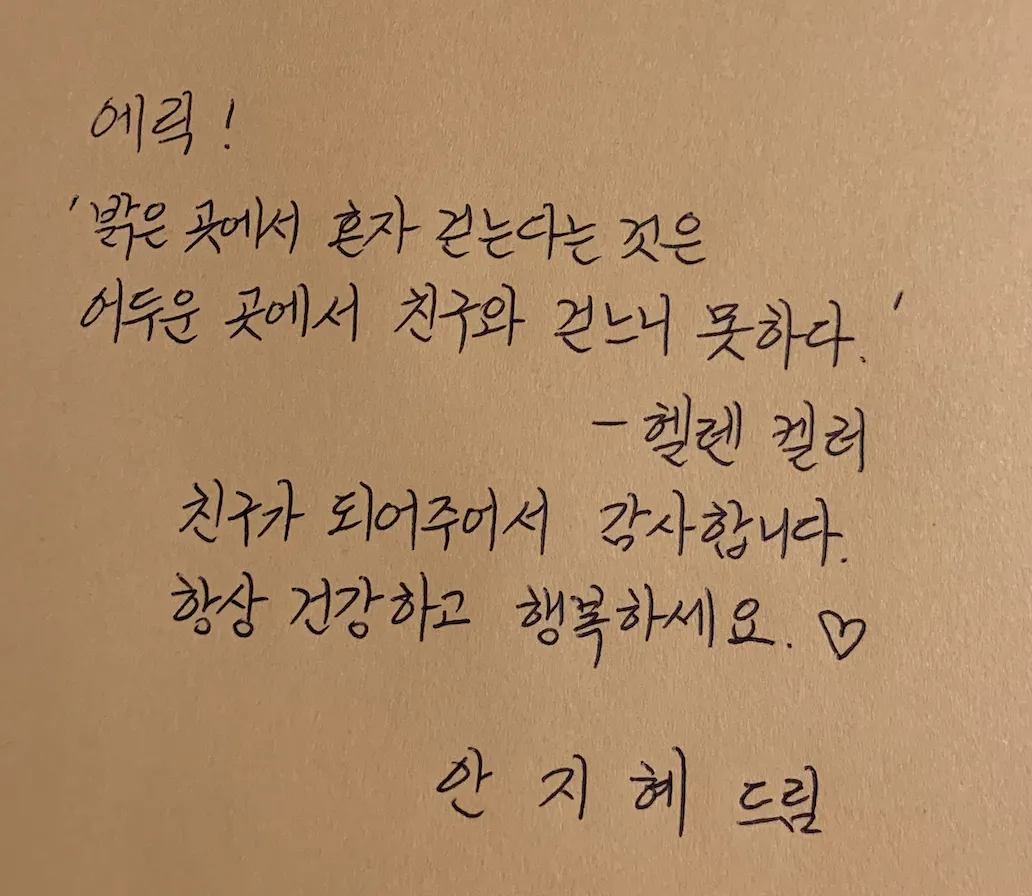 에릭!
'밝은 곳에서 혼자 걷는다는 것은
어두운 곳에서 친구와 걷느니 못하다.'
- 헬렌 켈러
친구가 되어주어서 감사합니다.
항상 건강하고 행복하세요. ♡
안 지 혜 드림